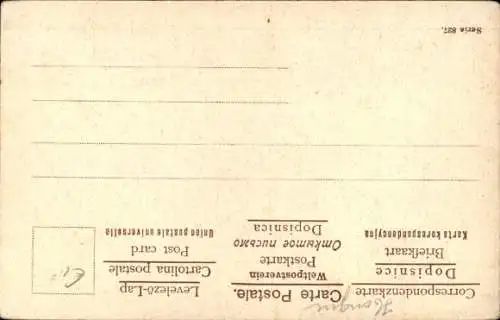 Carte Postale.
Weltpostverein
Postkarte
Открытое письмо
Dopisnica
Correspondenzkarte
Dopisnice
Briefkaart
Karta korespondencyjna
Levelező-Lap
Cartolina postale
Post card
Union postale universelle
Serie 827.